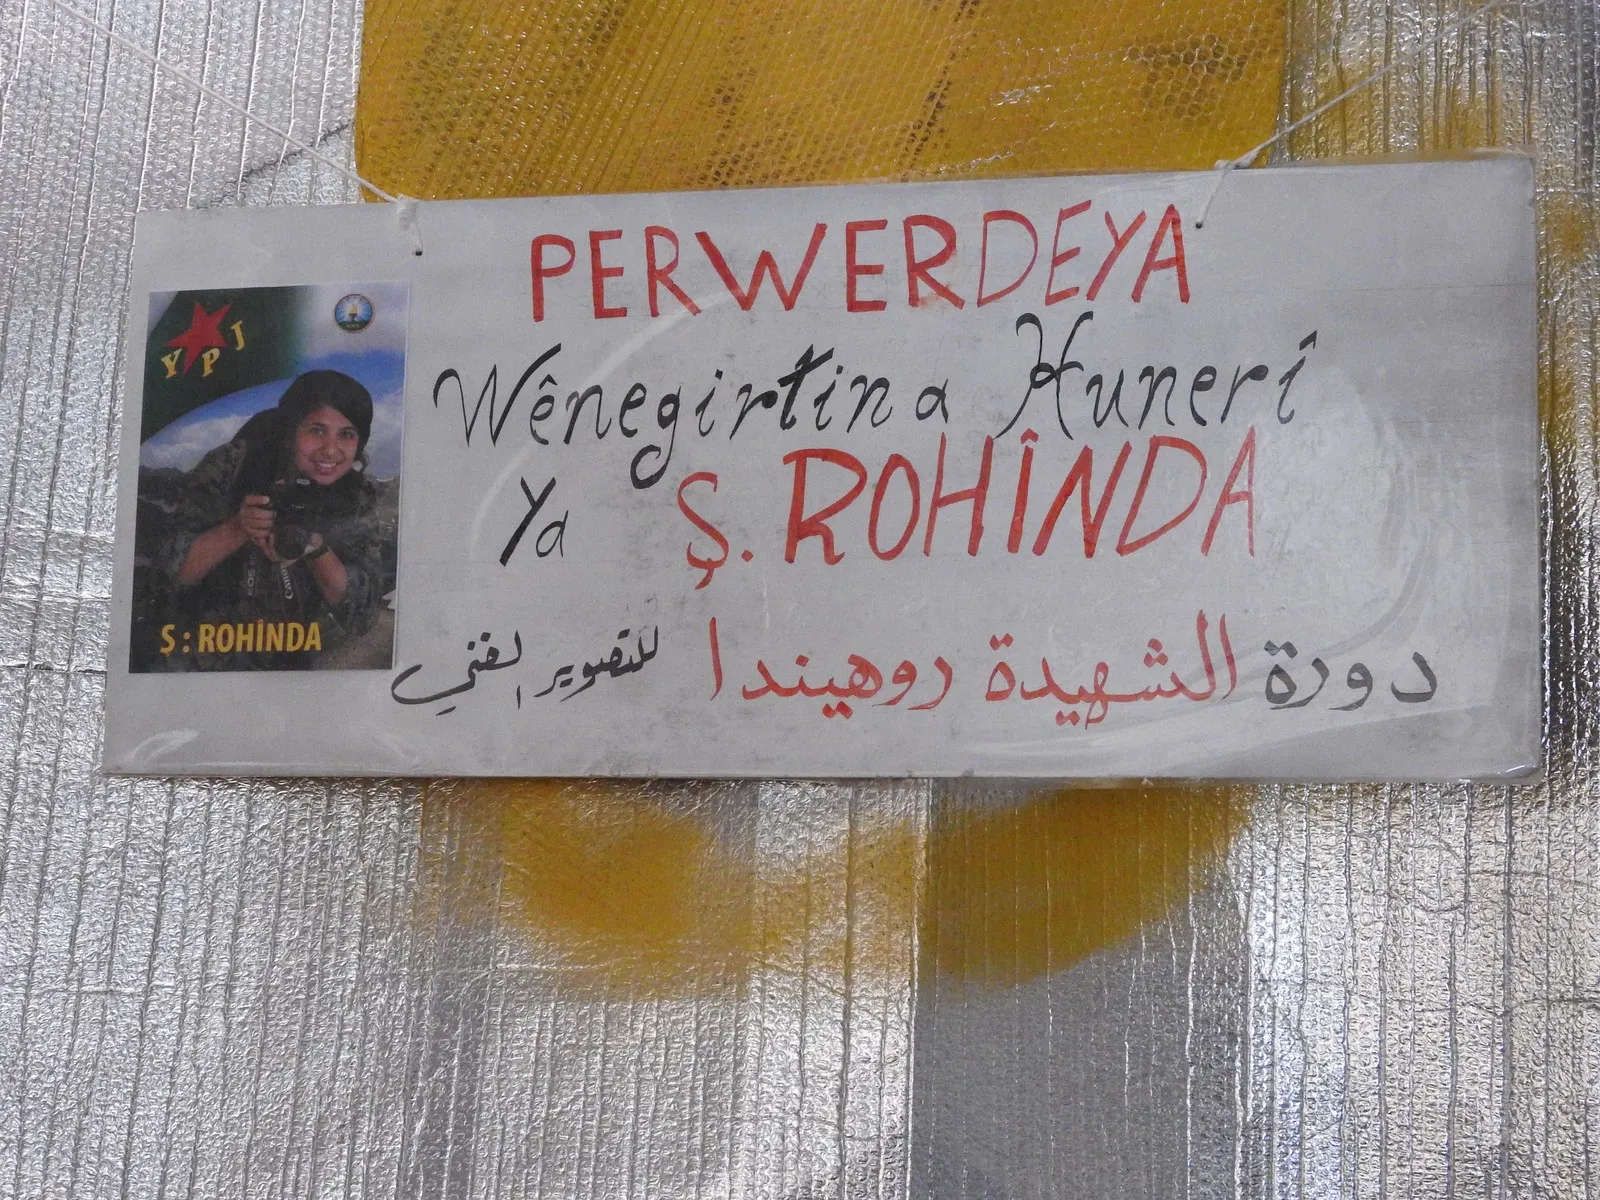 PERWERDEYA
Wênegirtina Hunerî
Ya Ş. ROHÎNDA
دورة الشهيدة روهيندا للتصوير الفني
YPJ
Canon
Ş : ROHÎNDA